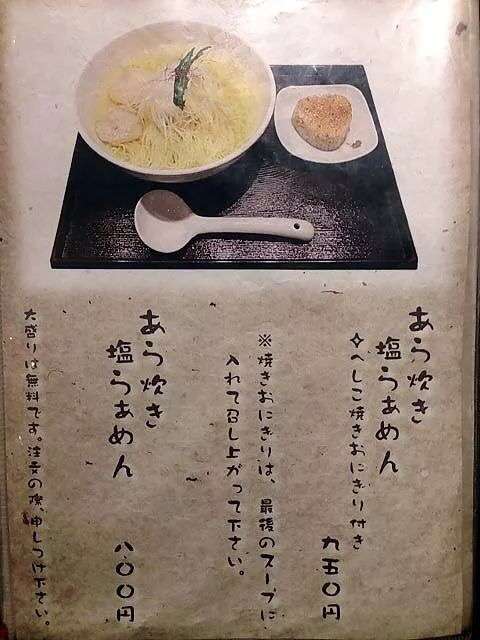 あら炊き
塩らぁめん
✧へしこ焼きおにぎり付き
九五〇円
※焼きおにぎりは、最後のスープに
入れて召し上がって下さい。
あら炊き
塩らぁめん
八〇〇円
大盛りは無料です。注文の際、申しつけ下さい。